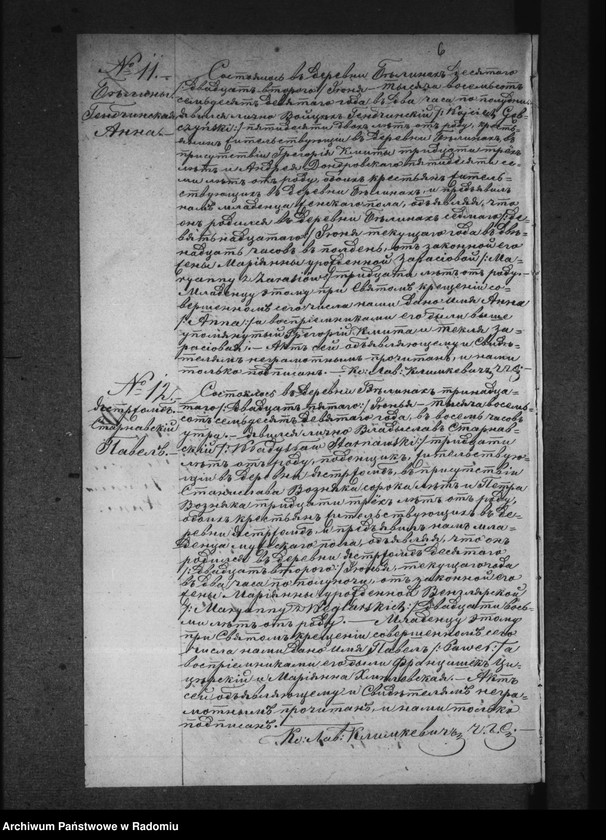 6
№ 11.
Бѣлины
Гендчинская
Анна
Состоялось въ деревни Бѣлинахъ десятого
/двадцать второго/ Іюня тысяча восемьсотъ
семьдесятъ девятаго года въ два часа по полудни
явился лично Войцѣхъ
/: пятидесяти двохъ лѣтъ отъ роду, кресть-
янинъ жительствующій въ деревни Бѣлинахъ въ
присутствіи Григорія Клиты тридцати трехъ
лѣтъ и Андрея Домбровскаго пятидесяти се-
ми лѣтъ отъ роду, обоихъ крестьянъ житель-
ствующихъ въ деревни Бѣлинахъ и предъявилъ
намъ младенца женскаго пола, объявляя, что
онъ родился въ деревни Бѣлинахъ седмаго /де-
вятьнадцатаго/ Іюня текущаго года въ две-
надцать часовъ въ полдень, отъ законной его
жены Маріянны урожденной Зарасіовой /: Ma-
ryanny z Zarasiow :/ тридцати лѣтъ отъ роду.
Младенцу этому при Святомъ крещеніи со-
вершенномъ сего числа нами дано имя Анна
/: Anna :/ а воспріемниками его были выше
упомянутый Григорій Клита и Текля За-
расіовая. Актъ сей объявляющему и свидѣ-
телямъ неграмотнымъ прочитанъ, и нами
только подписанъ. Кс: Лав: Климкевичъ
№ 12.
Ястржомбъ
Старнавскій
Павелъ
Состоялось въ деревни Бѣлинахъ тринадца-
таго /: двадцать пятаго :/ Іюня тысяча восемь-
сотъ семьдесятъ девятаго года, въ восемь часовъ
утра. Явился лично Владиславъ Старнав-
скій /: Władysław Starnawski :/ тридцати
лѣтъ отъ роду, поденщикъ, жительствую-
щій въ деревни Ястржомбъ, въ присутствіи
Станислава Возняка сорока лѣтъ и Петра
Возняка тридцати трехъ лѣтъ отъ роду,
обоихъ крестьянъ жительствующихъ въ де-
ревни Ястржомбъ и предъявилъ намъ мла-
денца мужескаго пола, объявляя, что онъ
родился въ деревни Ястржомбъ десятаго
/: двадцать второго :/ Іюня, текущаго года
въ два часа по полуночи, отъ законной его
жены Маріянны урожденной Венглярской
/: Maryanny z Węglarskich :/ двадцати вось-
ми лѣтъ отъ роду. Младенцу этому
при Святомъ крещеніи совершенномъ сего
числа нами дано имя Павелъ /: Paweł :/ а
воспріемниками его были Францишекъ
и Маріянна Актъ
сей объявляющему и свидѣтелямъ негра-
мотнымъ прочитанъ, и нами только
подписанъ.
Кс: Лав: Климкевичъ
Archiwum Państwowe w Radomiu